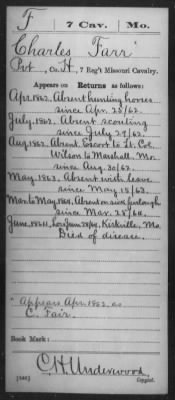 F 7 Cav. Mo.
Charles Farr
Pvt., Co. H, 7 Reg't Missouri Cavalry.
Appears on Returns as follows:
Apr. 1862. Absent hunting horses
since Apr. 28/62.
July, 1862. Absent scouting
since July 29/62.
Aug. 1862. Absent. Escort to Lt. Col.
Wilson to Marshall, Mo.
since Aug. 30/62.
May, 1863. Absent with leave
since May 18/63.
Mar. to May 1864. Absent on sick furlough
since Mar. 28/64.
June, 1864, Kirkville, Mo.
Died of disease.
" Appears Apr. 1862, as
C. Fair.
Book Mark:
(546) C. H. Underwood,
Copyist.